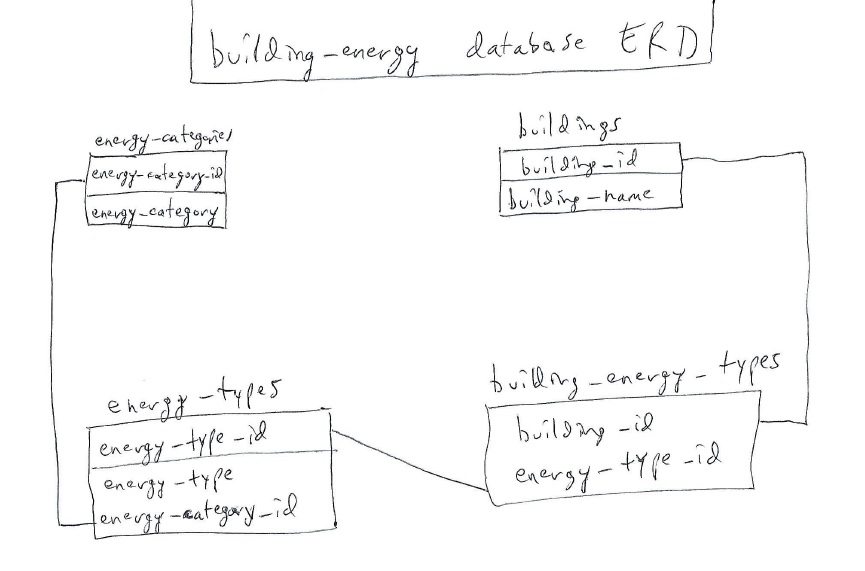 building-energy database ERD
energy-categories
energy-category-id
energy-category
buildings
building-id
building-name
energy-types
energy-type-id
energy-type
energy-category-id
building-energy-types
building-id
energy-type-id